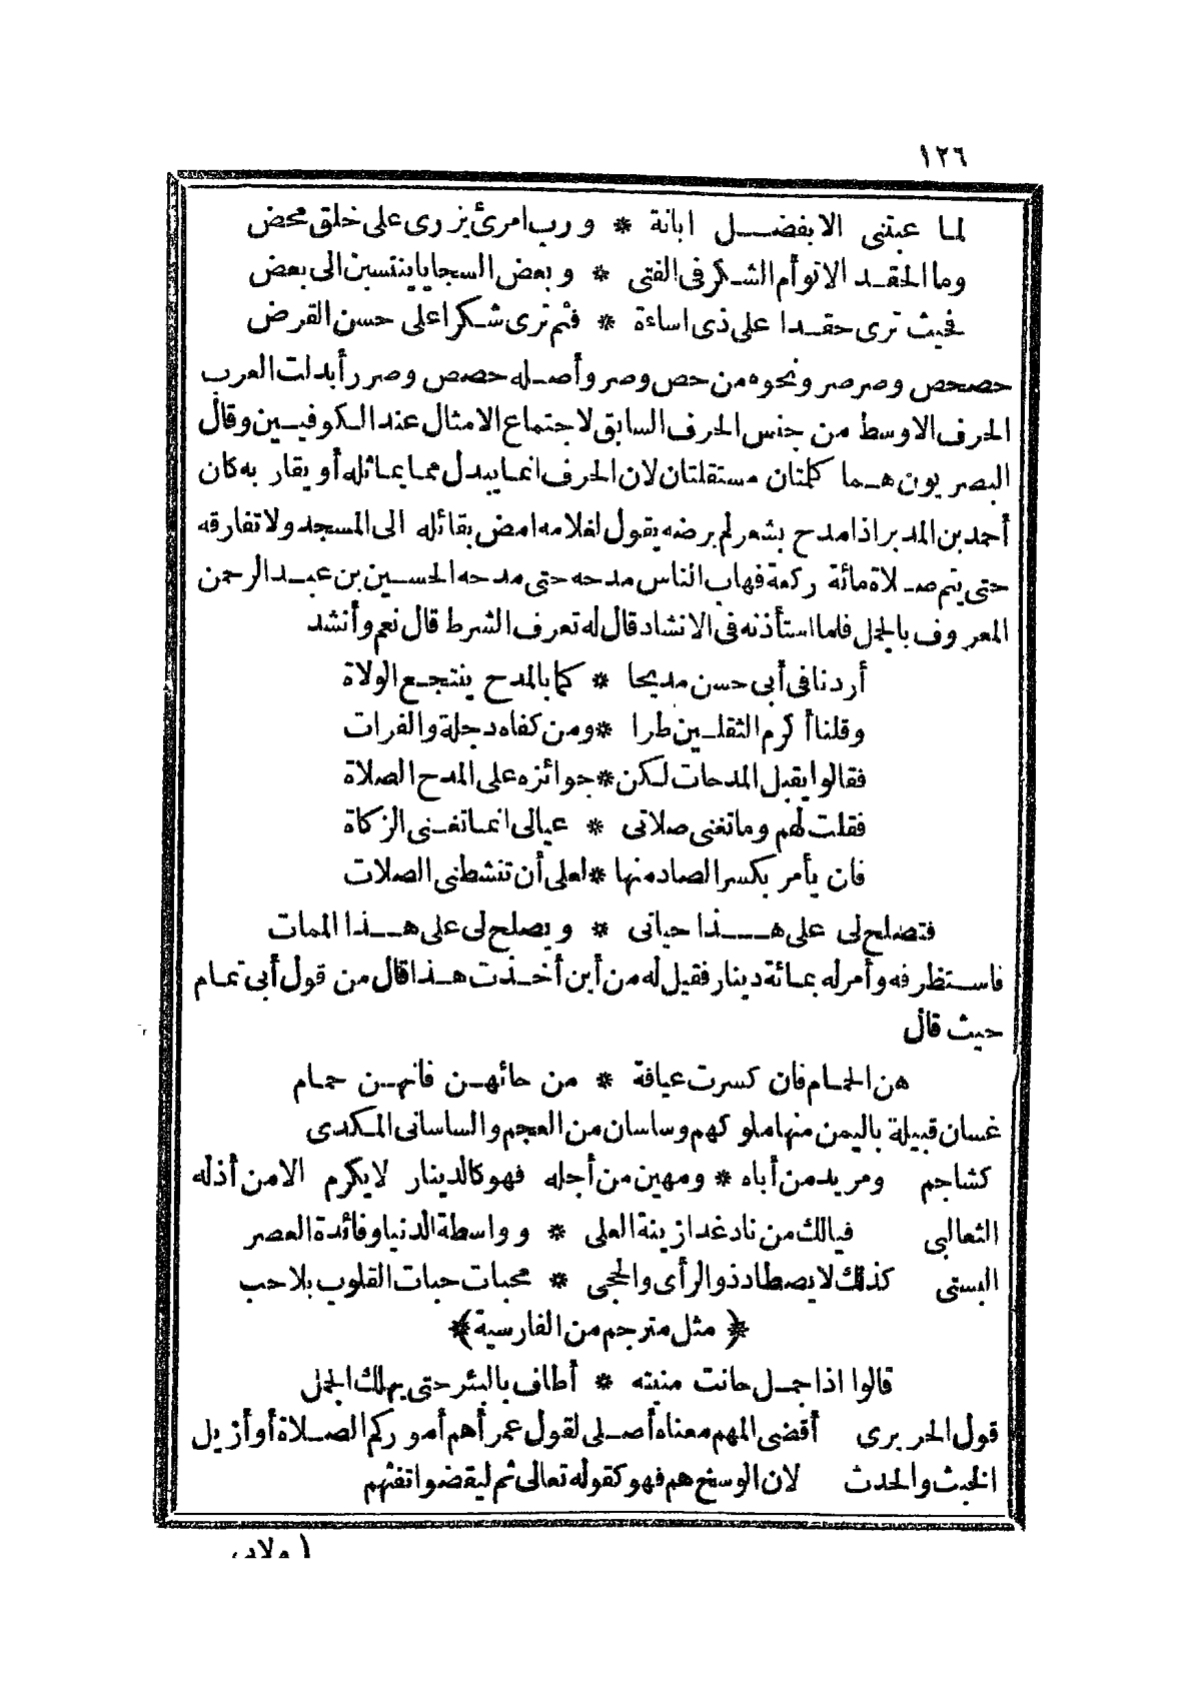 ١٢٦
لما عبتنى الا بفضل ابانة * ورب امرئ يزرى على خلق محض
وما الحقد الا توأم الشكر فى الفتى * وبعض السجايا ينتسبن الى بعض
فحيث ترى حقدا على ذى اساءة * فثم ترى شكرا على حسن القرض
حصحص وصرصر ونحوه من حص وصر وأصله حصص وصرر أبدلت العرب
الحرف الاوسط من جنس الحرف السابق لاجتماع الامثال عند الكوفيين وقال
البصريون هما كلمتان مستقلتان لان الحرف انما يبدل مما يماثله أو يقاربه كان
أحمد بن المدبر اذا مدح بشعر لم يرضه يقول لغلامه امض بقائله الى المسجد ولا تفارقه
حتى يتم صلاة مائة ركعة فهاب الناس مدحه حتى مدحه الحسين بن عبد الرحمن
المعروف بالجمل فلما استأذنه فى الانشاد قال له تعرف الشرط قال نعم وأنشد
أردنا فى أبى حسن مديحا * كما بالمدح ينتجع الولاة
وقلنا أكرم الثقلين طرا * ومن كفاه دجلة والفرات
فقالوا يقبل المدحات لكن * جوائزه على المدح الصلاة
فقلت لهم وما تغنى صلاتى * عيالى انما تغنى الزكاة
فان يأمر بكسر الصاد منها * لعلى أن تنشطنى الصلات
فتصلح لى على هذا حياتى * ويصلح لى على هذا الممات
فاستظرفه وأمر له بمائة دينار فقيل له من أين أخذت هذا قال من قول أبى تمام
حيث قال
هن الحمام فان كسرت عيافة * من حائهن فانهن حمام
غسان قبيلة باليمن منها ملوكهم وساسان من العجم والساسانى المكدى
كشاجم ومريد من أباه * ومهين من أجله فهو كالدينار لا يكرم الا من أذله
الثعالبى فيالك من ناد غدا زينة العلى * وواسطة الدنيا وفائدة العصر
البستى كذلك لا يصطاد ذو الرأى والحجى * محبات حبات القلوب بلا حب
﴿ مثل مترجم من الفارسية ﴾
قالوا اذا جمل حانت منيته * أطاف بالبئر حتى يهلك الجمل
قول الحريرى أقضى المهم معناه أصلى لقول عمر أهم أموركم الصلاة أو أزيل
الخبث والحدث لان الوسخ هم فهو كقوله تعالى ثم ليقضوا تفثهم